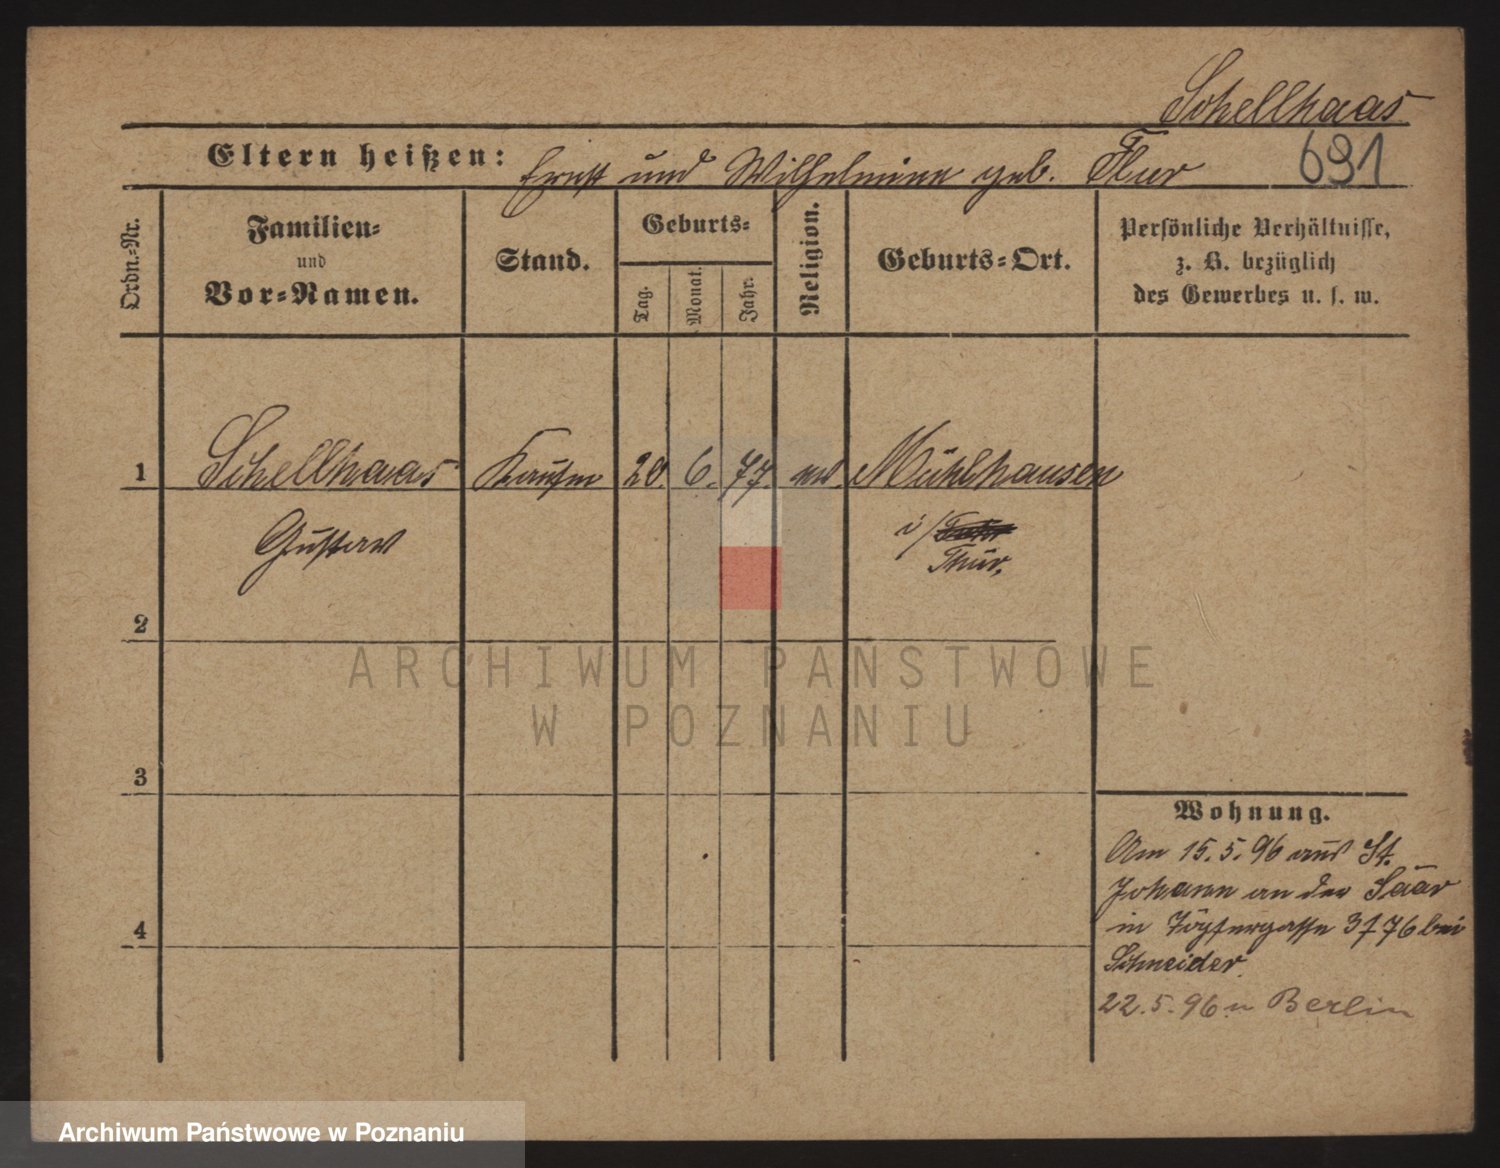 Schellhaas
Eltern heißen: Ernst und Wilhelmine geb. Flur
691
Ordn.-Nr.
Familien-
und
Vor-Namen.
Stand.
Geburts-
Tag.
Monat.
Jahr.
Religion.
Geburts-Ort.
Persönliche Verhältnisse,
z. B. bezüglich
des Gewerbes u. s. w.
1 Schellhaas Kaufm 20. 6. 77. Mühlhausen
Gustav i/
Thür.
2
3
4
Wohnung.
Am 15.5.96 aus St.
Johann an der Saar
in Töpfergasse 3 f 76 bei
Schneider.
22.5.96 n Berlin
ARCHIWUM PAŃSTWOWE
W POZNANIU
Archiwum Państwowe w Poznaniu